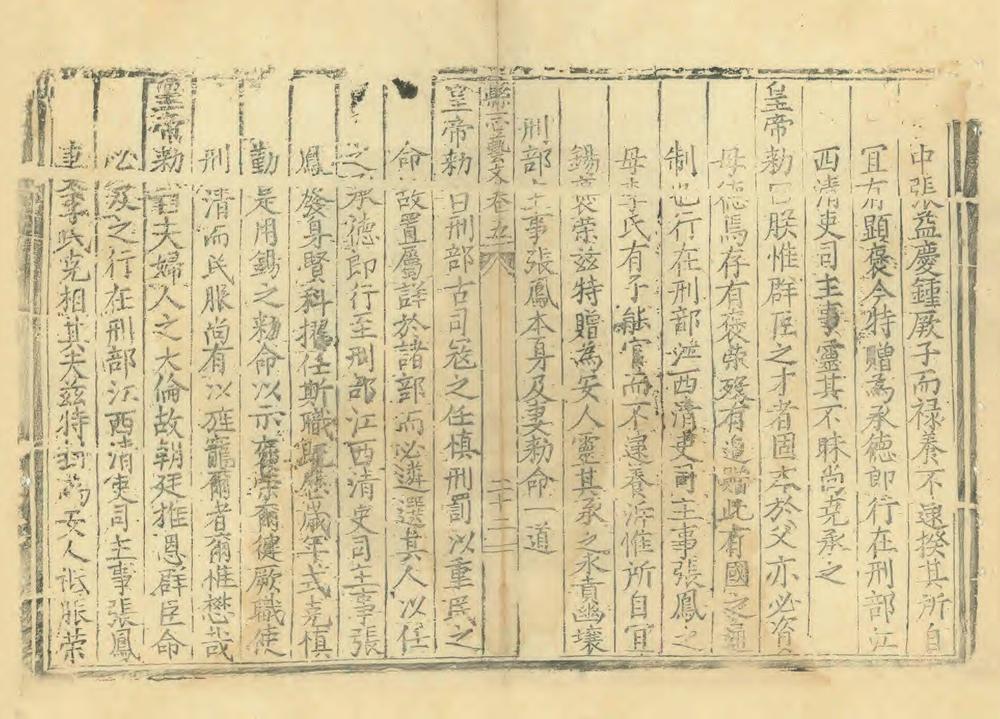 中張益慶鍾厥子而禄養不逮揆其所自
宜有顯褒今特贈為承德郎行在刑部江
西清吏司主事靈其不昧尚克承之
皇帝
勑曰朕惟群臣之才者固本於父亦必資
母德焉存有褒榮殁有追贈此有國之通
制也行在刑部江西清吏司主事張鳳之
母李氏有子能官而不逮養泝惟所自宜
錫褒榮兹特贈為安人靈其承之永賁幽壤
刑部主事張鳳本身及妻勑命一道
藝文卷九 二十二
皇帝勑曰刑部古司寇之任慎刑罰以重民之
命故置屬詳於諸部而必遴選其人以任
之承德郎行在刑部江西清吏司主事張
鳳發身賢科擢任斯職既歷歲年式克慎
勤是用錫之勑命以示爾榮爾徤厥職使
刑清而民服尚有以旌寵爾者爾惟懋哉
皇帝勑曰夫婦人之大倫故朝廷推恩群臣命
必及之行在刑部江西清吏司主事張鳳
妻李氏克相其夫兹特封為安人祗服榮